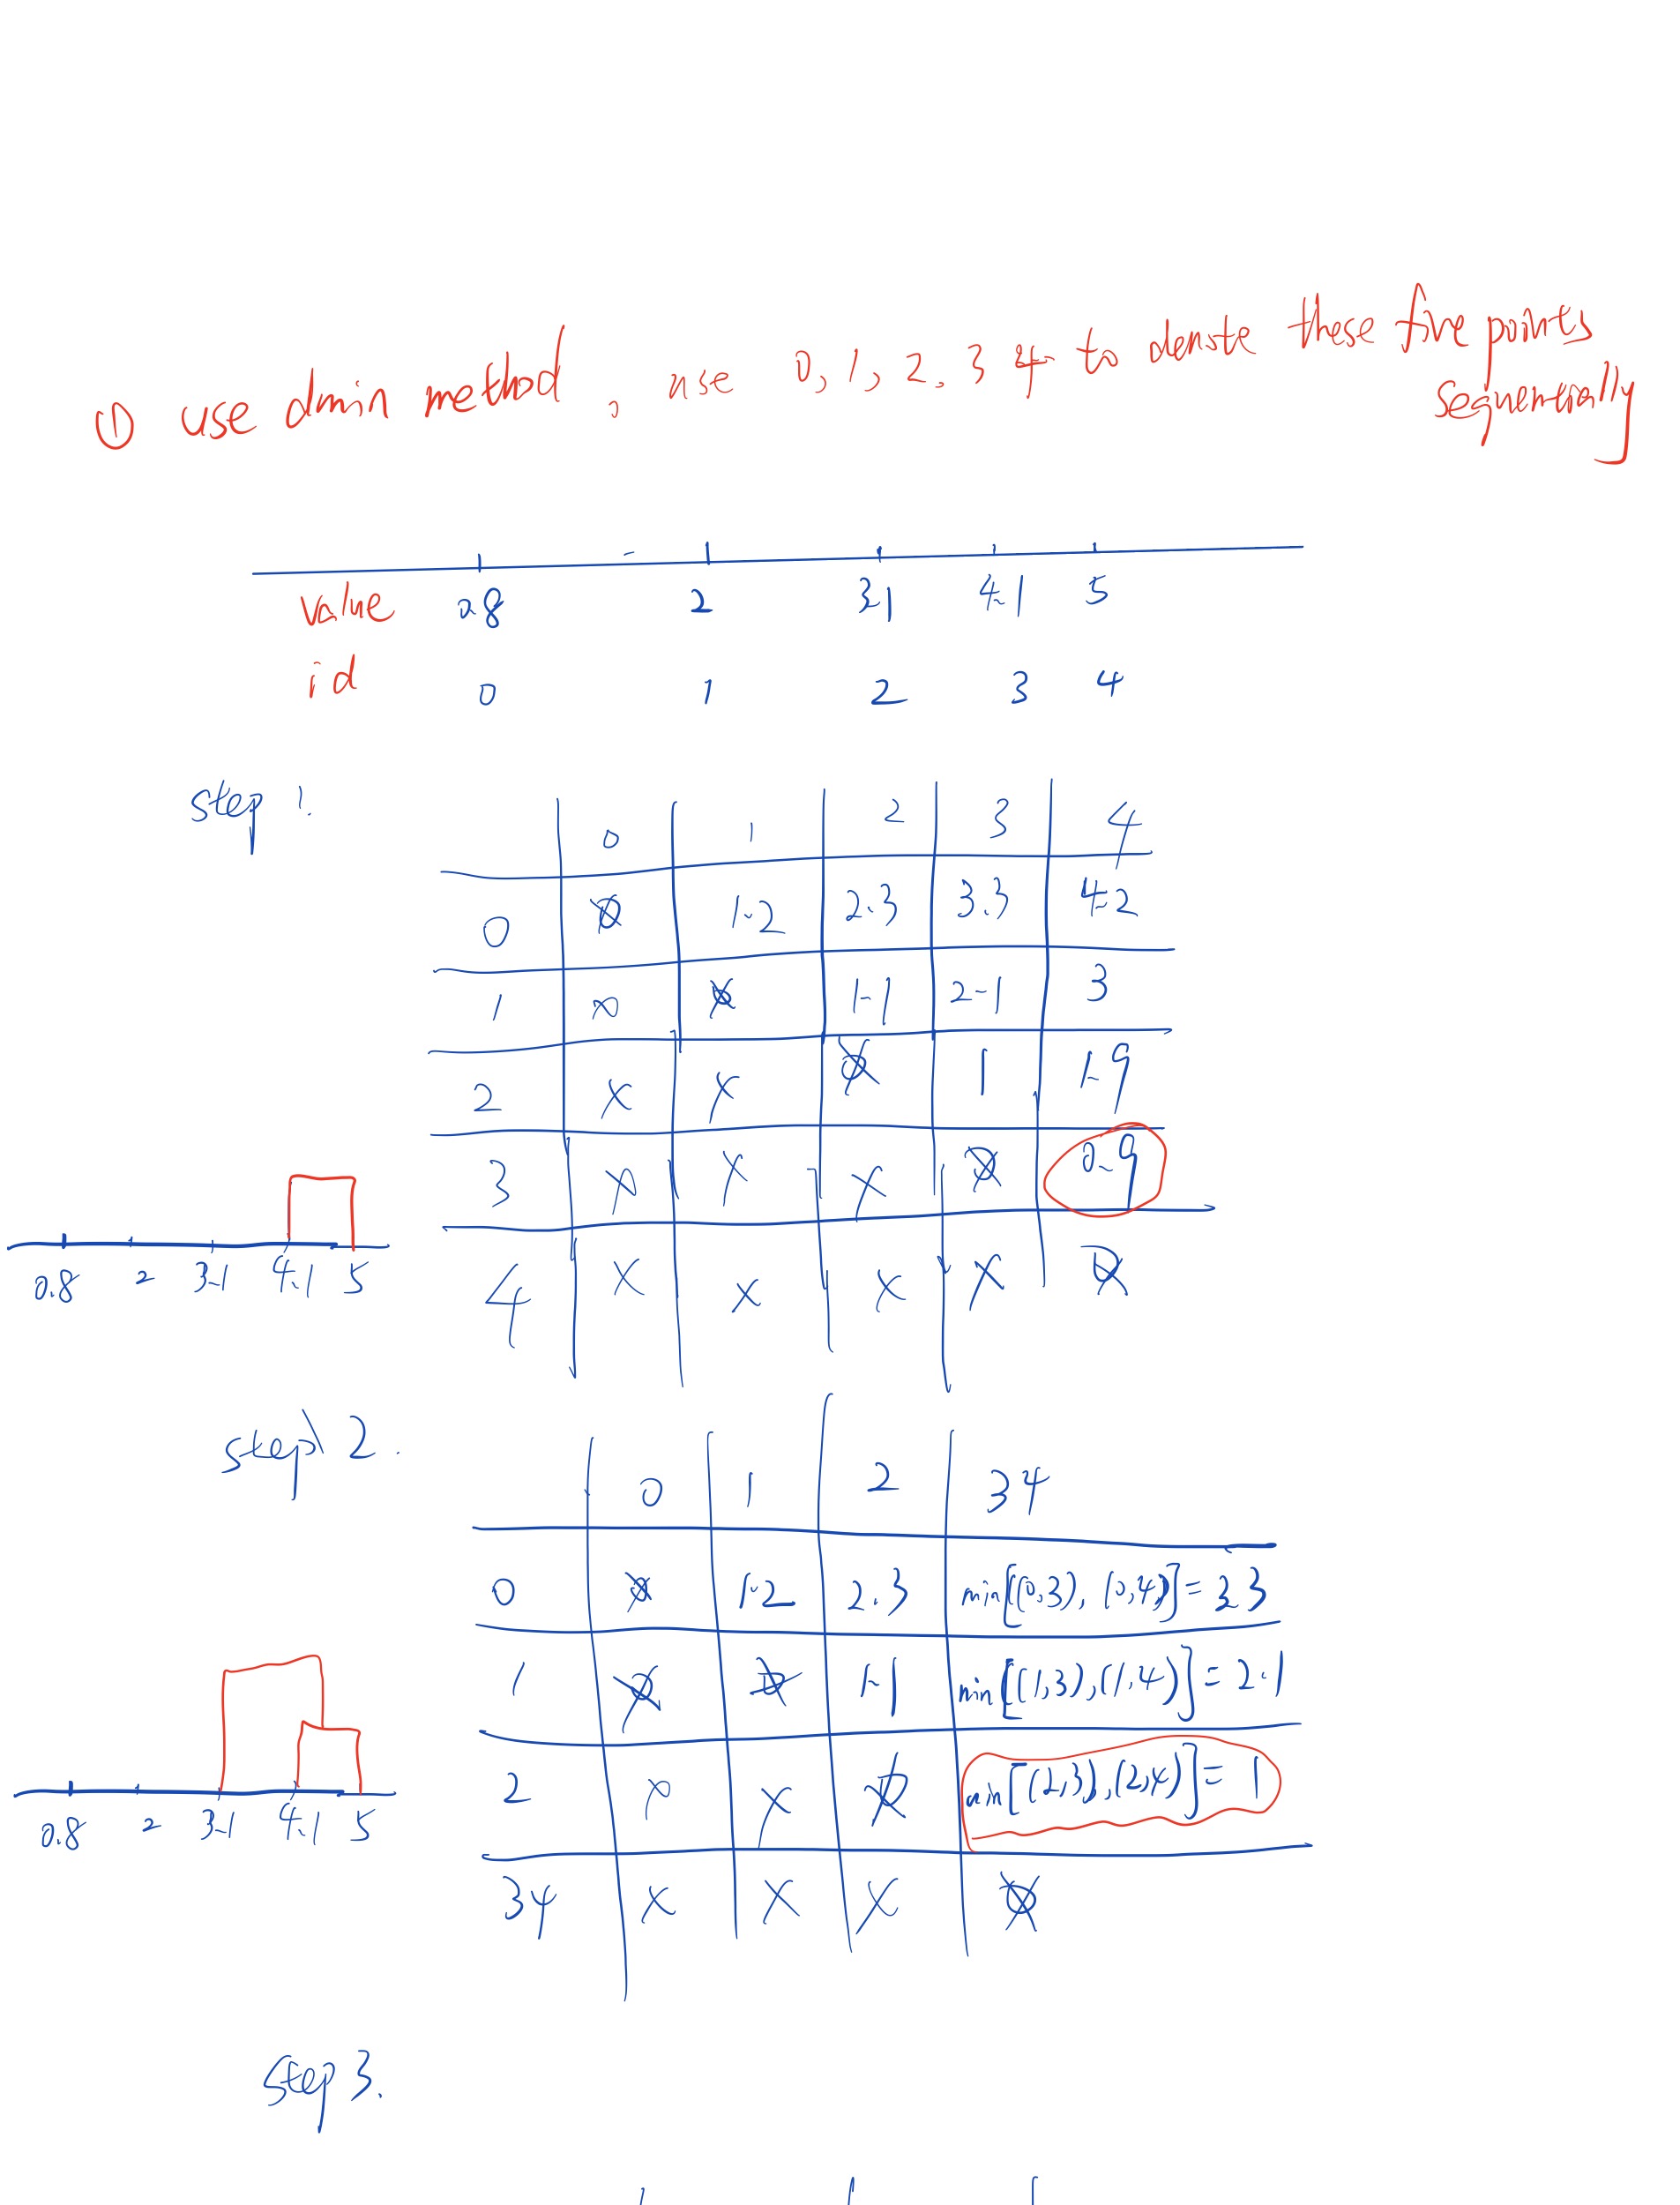 ① use dmin method, use 0, 1, 2, 3 4 to denote these five points
sequentially
value 0.8 2 3.1 4.1 5
id 0 1 2 3 4
step 1.
0 1 2 3 4
0 0 1.2 2.3 3.3 4.2
1 x 0 1.1 2.1 3
2 x x 0 1 1.9
3 x x x 0 0.9
4 x x x x 0
0.8 2 3.1 4.1 5
step 2.
0 1 2 34
0 0 1.2 2.3 min[(0,3), (0,4)] = 3.3
1 0 0 1.1 min[(1,3),(1,4)] = 2.1
2 x x 0 min[(2,3),(2,4)] = 1
34 x x x 0
0.8 2 3.1 4.1 5
step 3.